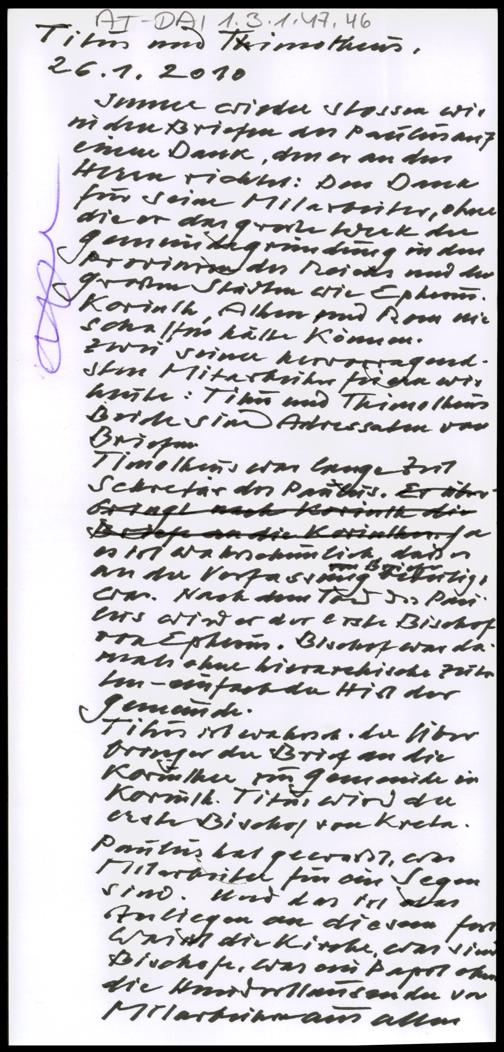 AI-DAI 1.3.1.47.46
Titus und Thimotheus.
26.1.2010
Immer wieder stossen wir
in den Briefen des Paulus auf
einen Dank, den er an den
Herrn richtet: Den Dank
für seine Mitarbeiter, ohne
die er das grosse Werk der
Gemeindegründung in den
Provinzen des Reichs und den
großen Städten wie Ephesus.
Korinth, Athen und Rom nie
schaffen hätte können.
Zwei seiner hervorragend-
sten Mitarbeiter feiern wir
heute: Titus und Thimotheus
Beide sind Adressaten von
Briefen
Timotheus war lange Zeit
Sekretär des Paulus. Er über-
bringt nach Korinth die
Briefe an die Korinther. Ja
es ist wahrscheinlich, daß er
an der Verfassung von Briefen beteiligt
war. Nach dem Tod des Pau-
lus wird er der erste Bischof
von Ephesus. Bischof war da-
mals ohne hierarchische
ten - einfach der Hirt der
Gemeinde.
Titus ist wahrsch. der Über
bringer der Brief an die
Korinther zur Gemeinde in
Korinth. Titus wird der
erste Bischof von Kreta.
Paulus hat gewußt, was
Mitarbeiter für ein Segen
sind. Und das ist das
Anliegen an diesem
die Kirche, was sind
Bischöfe, was ein Papst ohne
die Hunderttausende von
Mitarbeitern aus allen